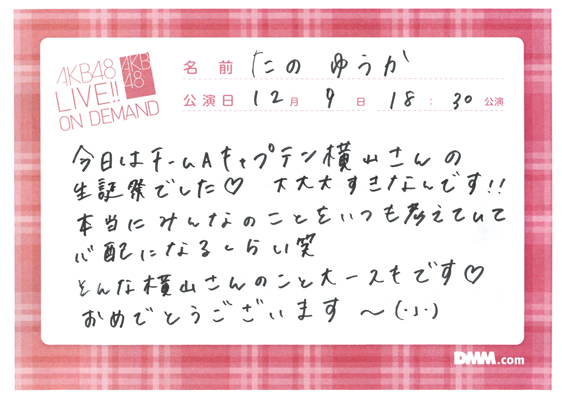 AKB48
LIVE!!
ON DEMAND
AKB
48
名前 たの ゆうか
公演日 12月 9日 18:30公演
今日はチームAキャプテン横山さんの
生誕祭でした♡ 大大大すきなんです!!
本当にみんなのことをいつも考えていて
心配になるくらい笑
そんな横山さんのこと大ースキです♡
おめでとうございます〜(・ω・)
DMM.com